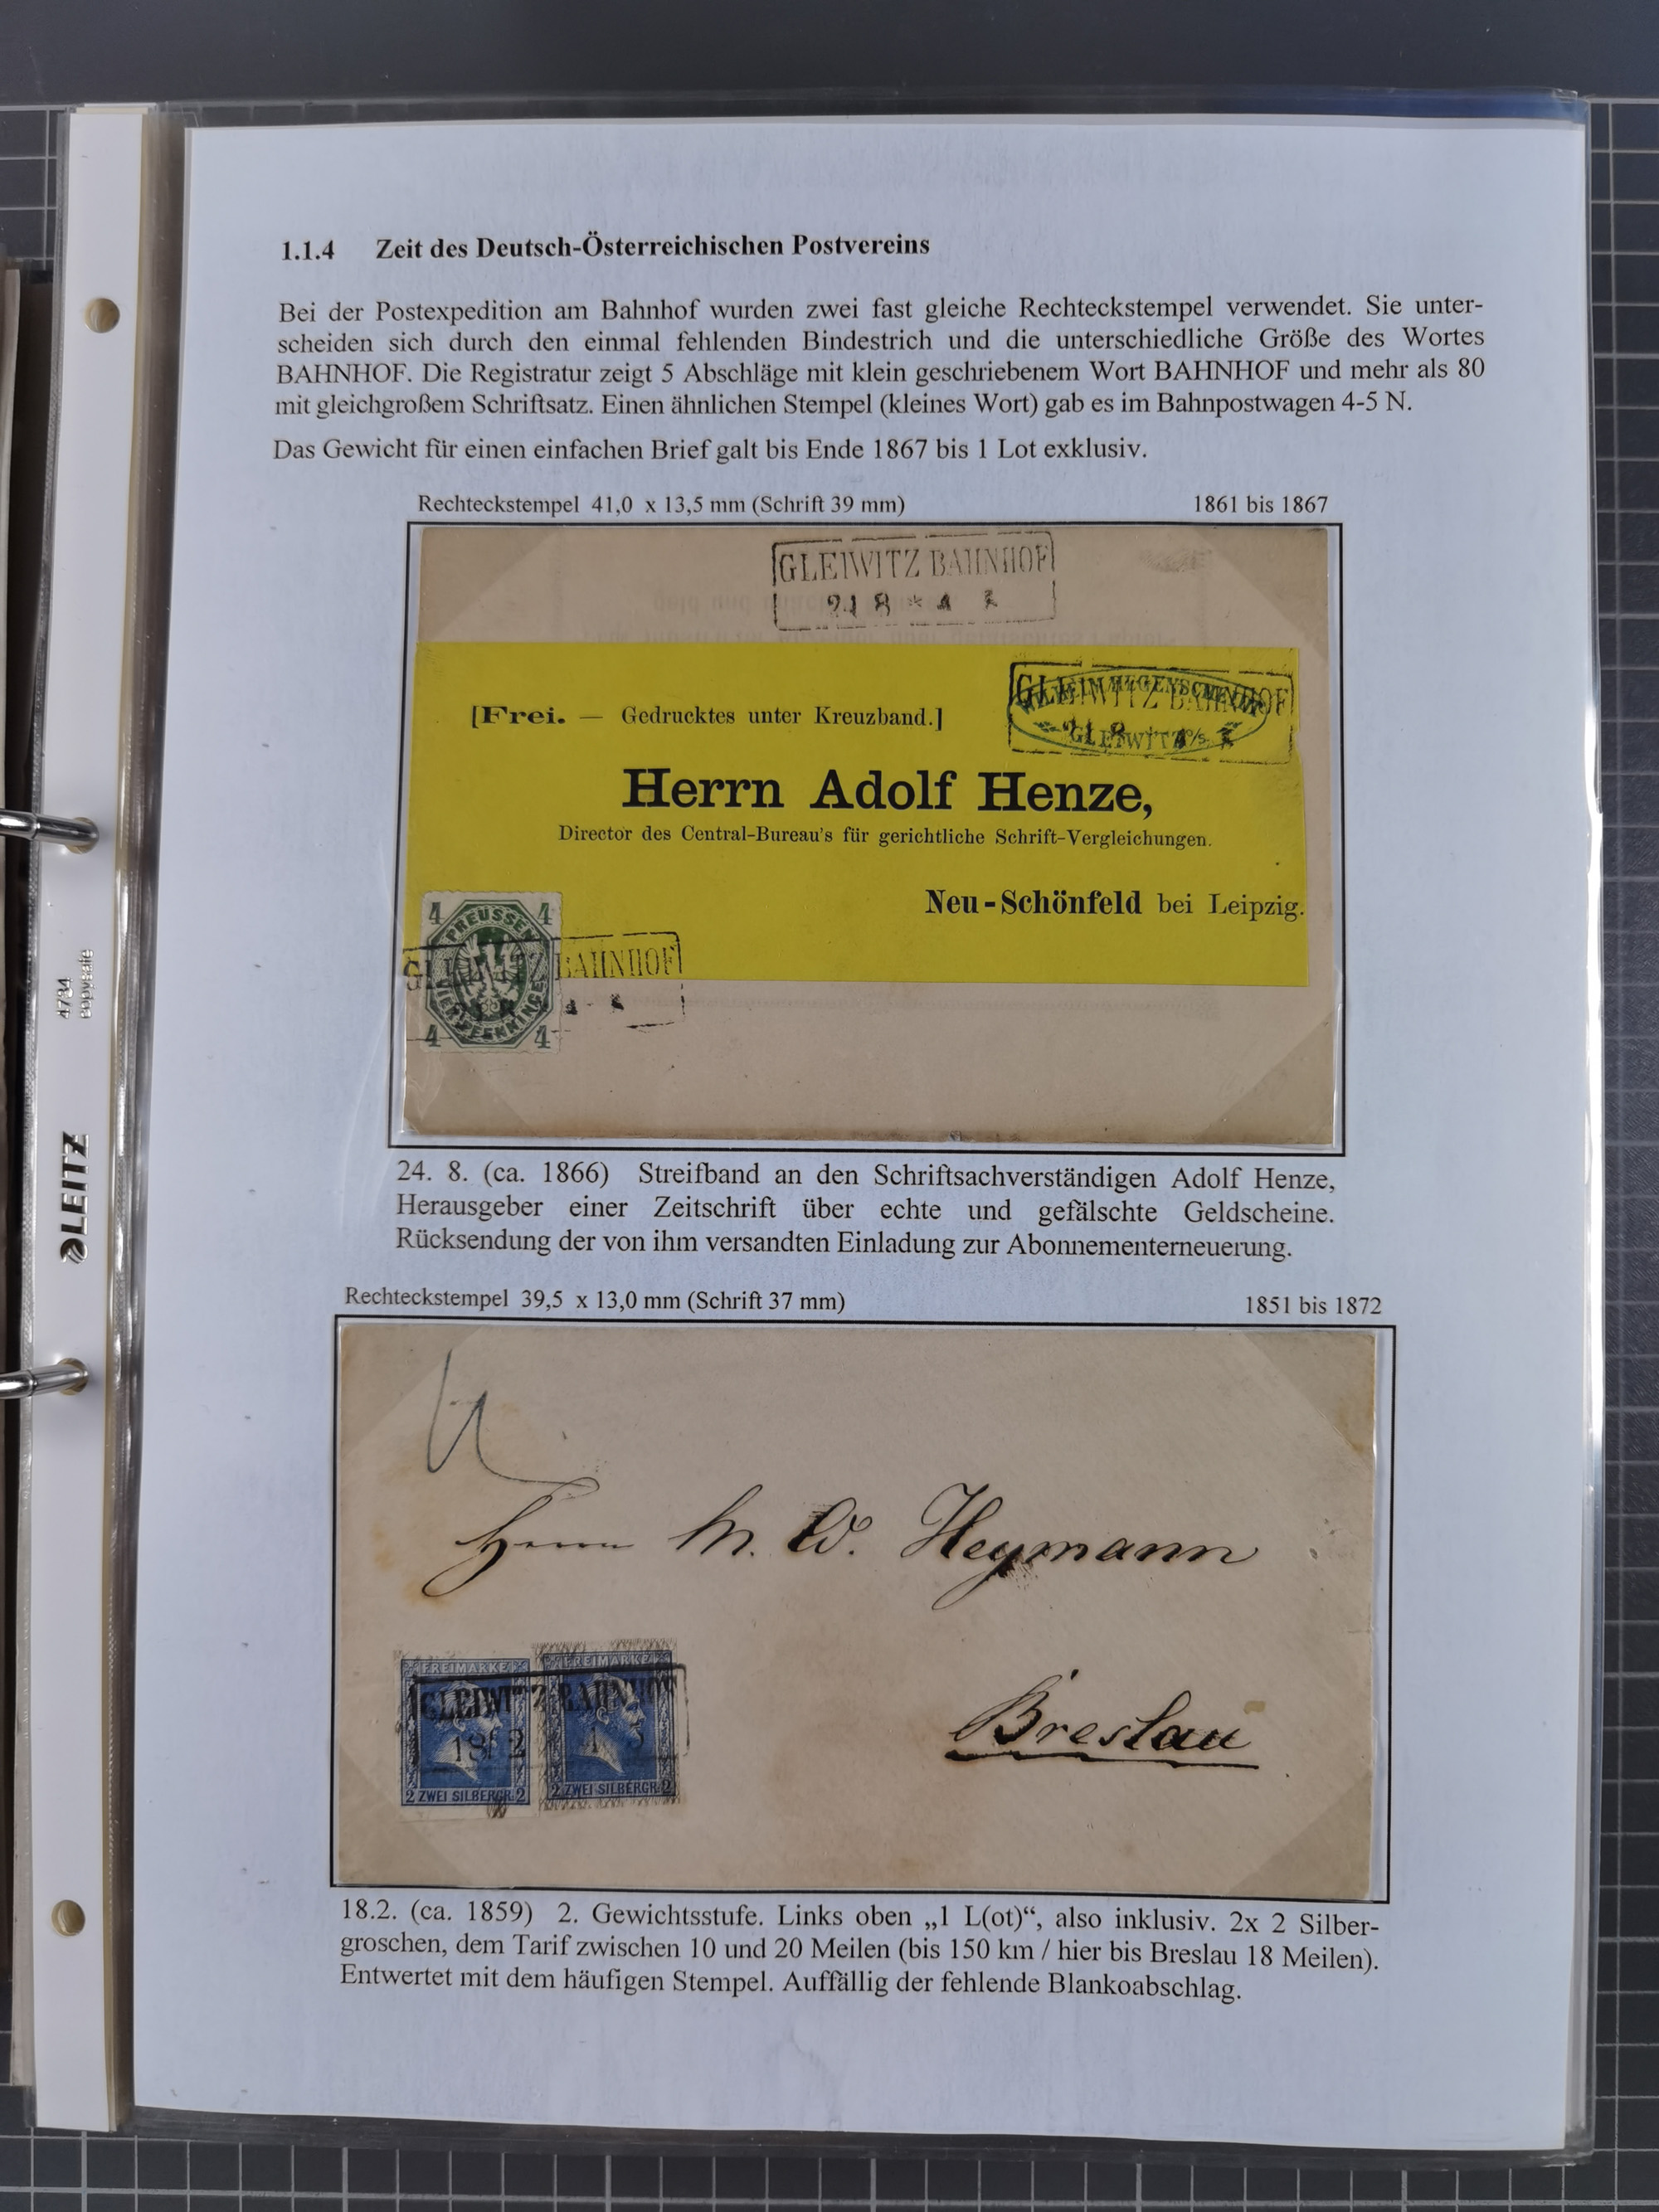 1.1.4 Zeit des Deutsch-Österreichischen Postvereins
Bei der Postexpedition am Bahnhof wurden zwei fast gleiche Rechteckstempel verwendet. Sie unter-
scheiden sich durch den einmal fehlenden Bindestrich und die unterschiedliche Größe des Wortes
BAHNHOF. Die Registratur zeigt 5 Abschläge mit klein geschriebenem Wort BAHNHOF und mehr als 80
mit gleichgroßem Schriftsatz. Einen ähnlichen Stempel (kleines Wort) gab es im Bahnpostwagen 4-5 N.
Das Gewicht für einen einfachen Brief galt bis Ende 1867 bis 1 Lot exklusiv.
Rechteckstempel 41,0 x 13,5 mm (Schrift 39 mm) 1861 bis 1867
GLEIWITZ BAHNHOF
GLEIWITZ BAHNHOF
GLEIWITZ O/S.
[Frei. — Gedrucktes unter Kreuzband.]
Herrn Adolf Henze,
Director des Central-Bureau's für gerichtliche Schrift-Vergleichungen.
Neu-Schönfeld bei Leipzig.
4 4
PREUSSEN
VIER PFENNINGE
4 4
GLEIWITZ BAHNHOF
24. 8. (ca. 1866) Streifband an den Schriftsachverständigen Adolf Henze,
Herausgeber einer Zeitschrift über echte und gefälschte Geldscheine.
Rücksendung der von ihm versandten Einladung zur Abonnementerneuerung.
Rechteckstempel 39,5 x 13,0 mm (Schrift 37 mm) 1851 bis 1872
Herrn M. W. Heymann
Breslau
FREIMARKE FREIMARKE
GLEIWITZ BAHNHOF
18 2
2 ZWEI SILBERGR. 2 2 ZWEI SILBERGR. 2
18.2. (ca. 1859) 2. Gewichtsstufe. Links oben „1 L(ot)“, also inklusiv. 2x 2 Silber-
groschen, dem Tarif zwischen 10 und 20 Meilen (bis 150 km / hier bis Breslau 18 Meilen).
Entwertet mit dem häufigen Stempel. Auffällig der fehlende Blankoabschlag.
4734
copysafe
LEITZ